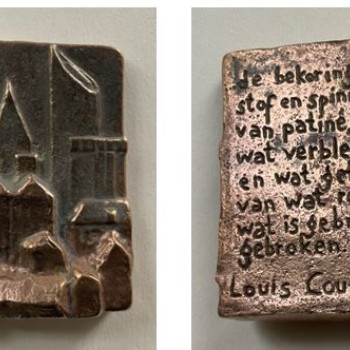 de bekorin
stof en spin
van patine
wat verble
en wat ge
van wat r
wat is geb
gebroken.
Louis Cou